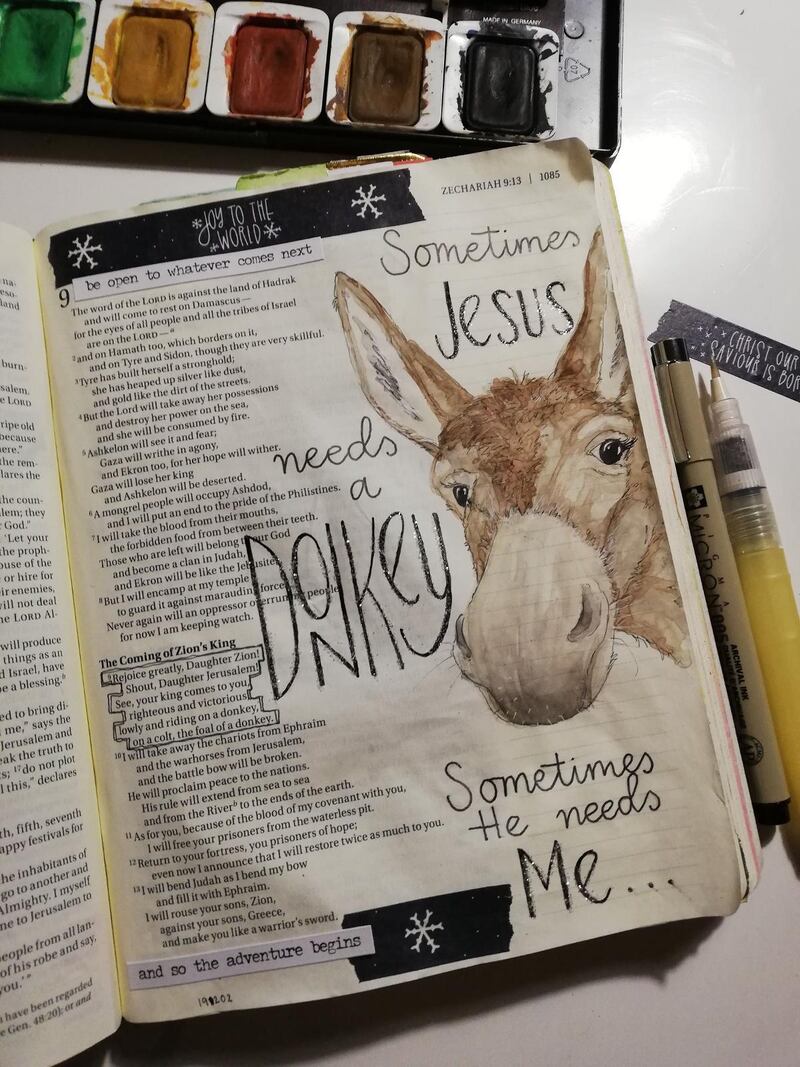 MADE IN GERMANY
ZECHARIAH 9:13 | 1085
JOY TO THE
WORLD
be open to whatever comes next
Sometimes
Jesus
needs
a
DONKEY
Sometimes
He needs
Me...
9 The word of the LORD is against the land of Hadrak
and will come to rest on Damascus—
for the eyes of all people and all the tribes of Israel
are on the LORD—a
2 and on Hamath too, which borders on it,
and on Tyre and Sidon, though they are very skillful.
3 Tyre has built herself a stronghold;
she has heaped up silver like dust,
and gold like the dirt of the streets.
4 But the Lord will take away her possessions
and destroy her power on the sea,
and she will be consumed by fire.
5 Ashkelon will see it and fear;
Gaza will writhe in agony,
and Ekron too, for her hope will wither.
Gaza will lose her king
and Ashkelon will be deserted.
6 A mongrel people will occupy Ashdod,
and I will put an end to the pride of the Philistines.
7 I will take the blood from their mouths,
the forbidden food from between their teeth.
Those who are left will belong to our God
and become a clan in Judah,
and Ekron will be like the Jebusites.
8 But I will encamp at my temple
to guard it against marauding forces.
Never again will an oppressor overrun my people,
for now I am keeping watch.
The Coming of Zion's King
9 Rejoice greatly, Daughter Zion!
Shout, Daughter Jerusalem!
See, your king comes to you,
righteous and victorious,
lowly and riding on a donkey,
on a colt, the foal of a donkey.
10 I will take away the chariots from Ephraim
and the warhorses from Jerusalem,
and the battle bow will be broken.
He will proclaim peace to the nations.
His rule will extend from sea to sea
and from the River b to the ends of the earth.
11 As for you, because of the blood of my covenant with you,
I will free your prisoners from the waterless pit.
12 Return to your fortress, you prisoners of hope;
even now I announce that I will restore twice as much to you.
13 I will bend Judah as I bend my bow
and fill it with Ephraim.
I will rouse your sons, Zion,
against your sons, Greece,
and make you like a warrior's sword.
and so the adventure begins
CHRIST OUR
SAVIOUR IS BOR
MICRON
ARCHIVAL INK
burn-
salem.
e LORD
ripe old
because
the rem-
lares the
the coun-
God."
'Let your
the proph-
ouse of the
or hire for
ir enemies,
will not deal
the LORD Al-
will produce
things as an
d Israel, have
be a blessing. b
ed to bring di-
me," says the
Jerusalem and
eak the truth to
17 do not plot
l this," declares
th, fifth, seventh
appy festivals for
the inhabitants of
go to another and
Almighty. I myself
me to Jerusalem to
people from all lan-
of his robe and say,
you.'"
have been regarded
Gen. 48:20); or and